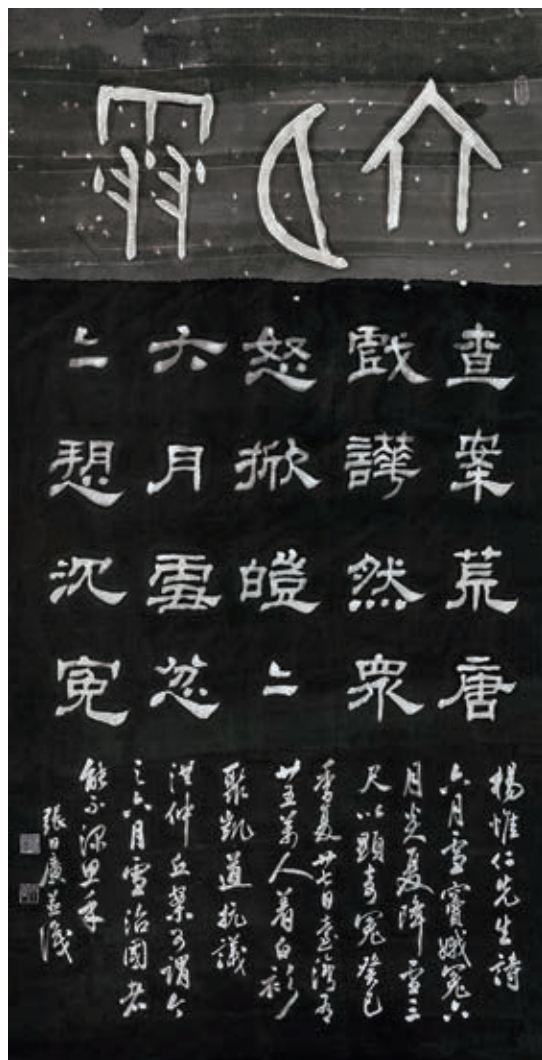 六月雪
查案荒唐
戲譁然眾
怒掀皚〻
六月雪忽
〻想沉冤
楊惟仁先生詩
六月雪竇娥冤六
月炎夏降雪三
尺以顯奇冤癸巳
季夏廿七日臺灣有
廿五萬人着白衫
聚凱道抗議
洪仲丘案可謂今
之六月雪治國者
能不深思乎
張日廣並識